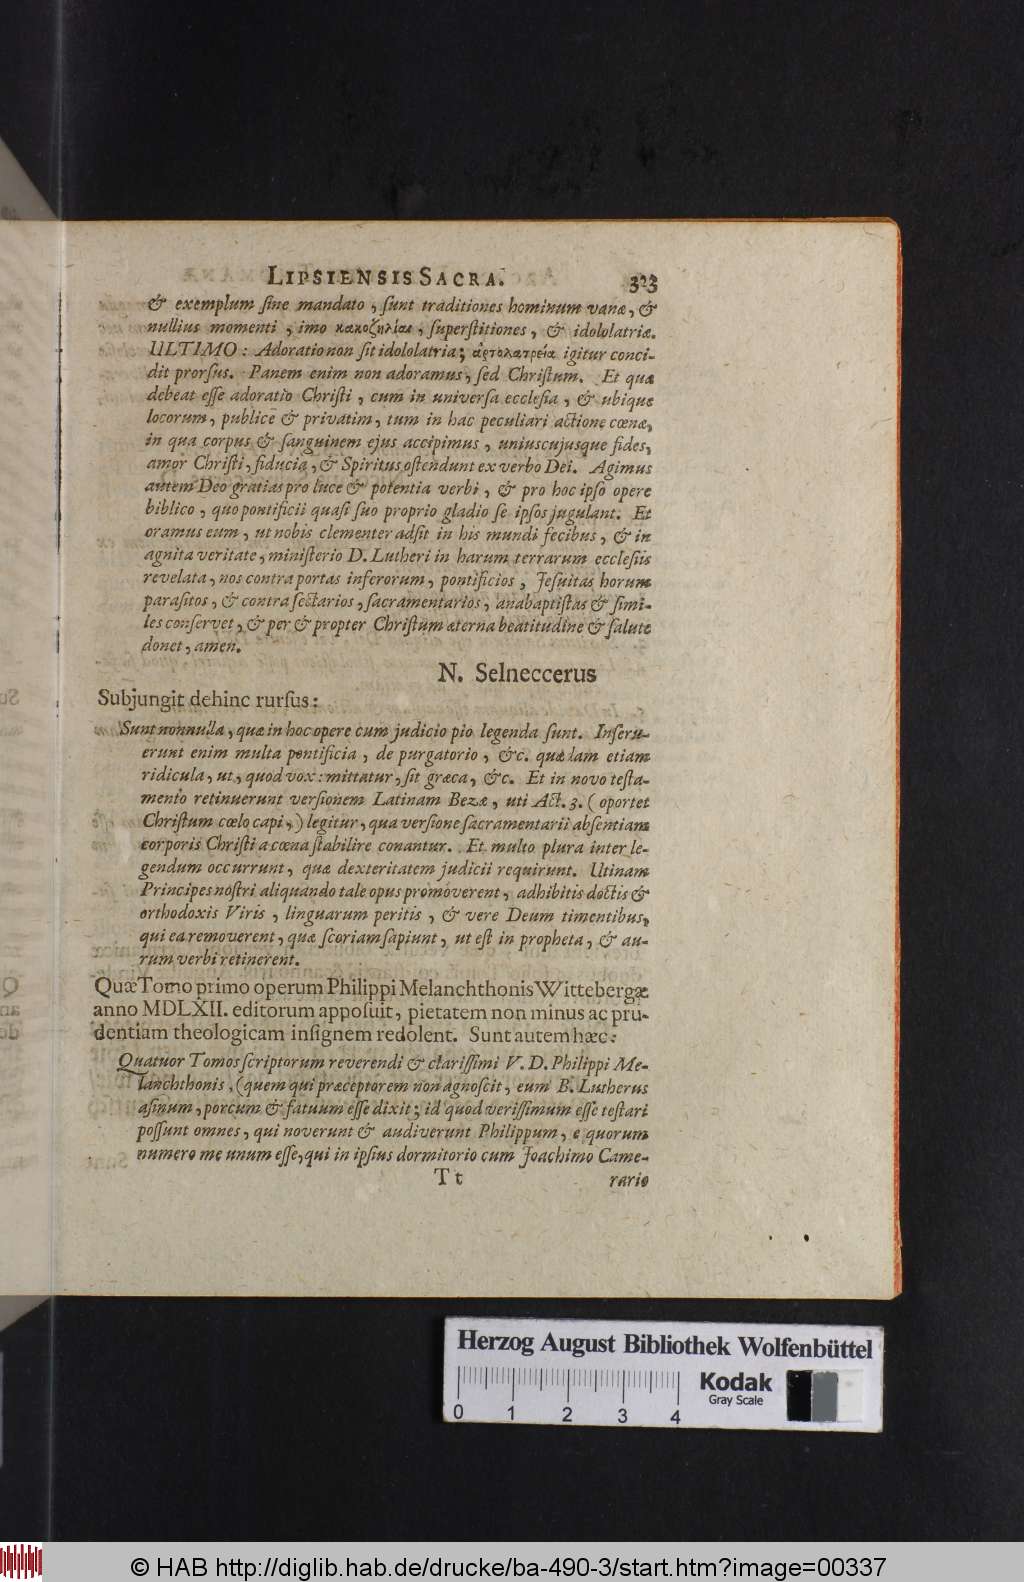 LIPSIENSIS SACRA. 323
& exemplum ſine mandato, ſunt traditiones hominum vanæ, &
nullius momenti, imo κακοζηλίαι, ſuperſtitiones, & idololatriæ.
ULTIMO: Adoratio non ſit idololatria; ἀρτολατρεία igitur conci-
dit prorſus. Panem enim non adoramus, ſed Chriſtum. Et quæ
debeat eſſe adoratio Chriſti, cum in univerſa eccleſia, & ubique
locorum, publicè & privatim, tum in hac peculiari actione cœnæ,
in qua corpus & ſanguinem ejus accipimus, uniuscujusque fides,
amor Chriſti, fiducia, & Spiritus oſtendunt ex verbo Dei. Agimus
autem Deo gratias pro luce & potentia verbi, & pro hoc ipſo opere
biblico, quo pontificii quaſi ſuo proprio gladio ſe ipſos jugulant. Et
oramus eum, ut nobis clementer adſit in his mundi fecibus, & in
agnita veritate, miniſterio D. Lutheri in harum terrarum eccleſiis
revelata, nos contra portas inferorum, pontificios, Jeſuitas horum
paraſitos, & contra ſectarios, ſacramentarios, anabaptiſtas & ſimi-
les conſervet, & per & propter Chriſtum æterna beatitudine & ſalute
donet, amen.
N. Selneccerus
Subjungit dehinc rurſus:
Sunt nonnulla, quæ in hoc opere cum judicio pio legenda ſunt. Inſeru-
erunt enim multa pontificia, de purgatorio, &c. quædam etiam
ridicula, ut, quod vox: mittatur, ſit græca, &c. Et in novo teſta-
mento retinuerunt verſionem Latinam Bezæ, uti Act. 3. (oportet
Chriſtum cœlo capi,) legitur, qua verſione ſacramentarii abſentiam
corporis Chriſti a cœna ſtabilire conantur. Et multo plura inter le-
gendum occurrunt, quæ dexteritatem judicii requirunt. Utinam
Principes noſtri aliquando tale opus promoverent, adhibitis doctis &
orthodoxis Viris, linguarum peritis, & vere Deum timentibus,
qui ea removerent, quæ ſcoriam ſapiunt, ut eſt in propheta, & au-
rum verbi retinerent.
Quæ Tomo primo operum Philippi Melanchthonis Wittebergæ
anno MDLXII. editorum appoſuit, pietatem non minus ac pru-
dentiam theologicam inſignem redolent. Sunt autem hæc:
Quatuor Tomos ſcriptorum reverendi & clariſſimi V. D. Philippi Me-
lanchthonis, (quem qui præceptorem non agnoſcit, eum B. Lutherus
aſinum, porcum & fatuum eſſe dixit; id quod veriſſimum eſſe teſtari
poſſunt omnes, qui noverunt & audiverunt Philippum, e quorum
numero me unum eſſe, qui in ipſius dormitorio cum Joachimo Came-
T t rario
Herzog August Bibliothek Wolfenbüttel
Kodak
Gray Scale
0 1 2 3 4
© HAB http://diglib.hab.de/drucke/ba-490-3/start.htm?image=00337